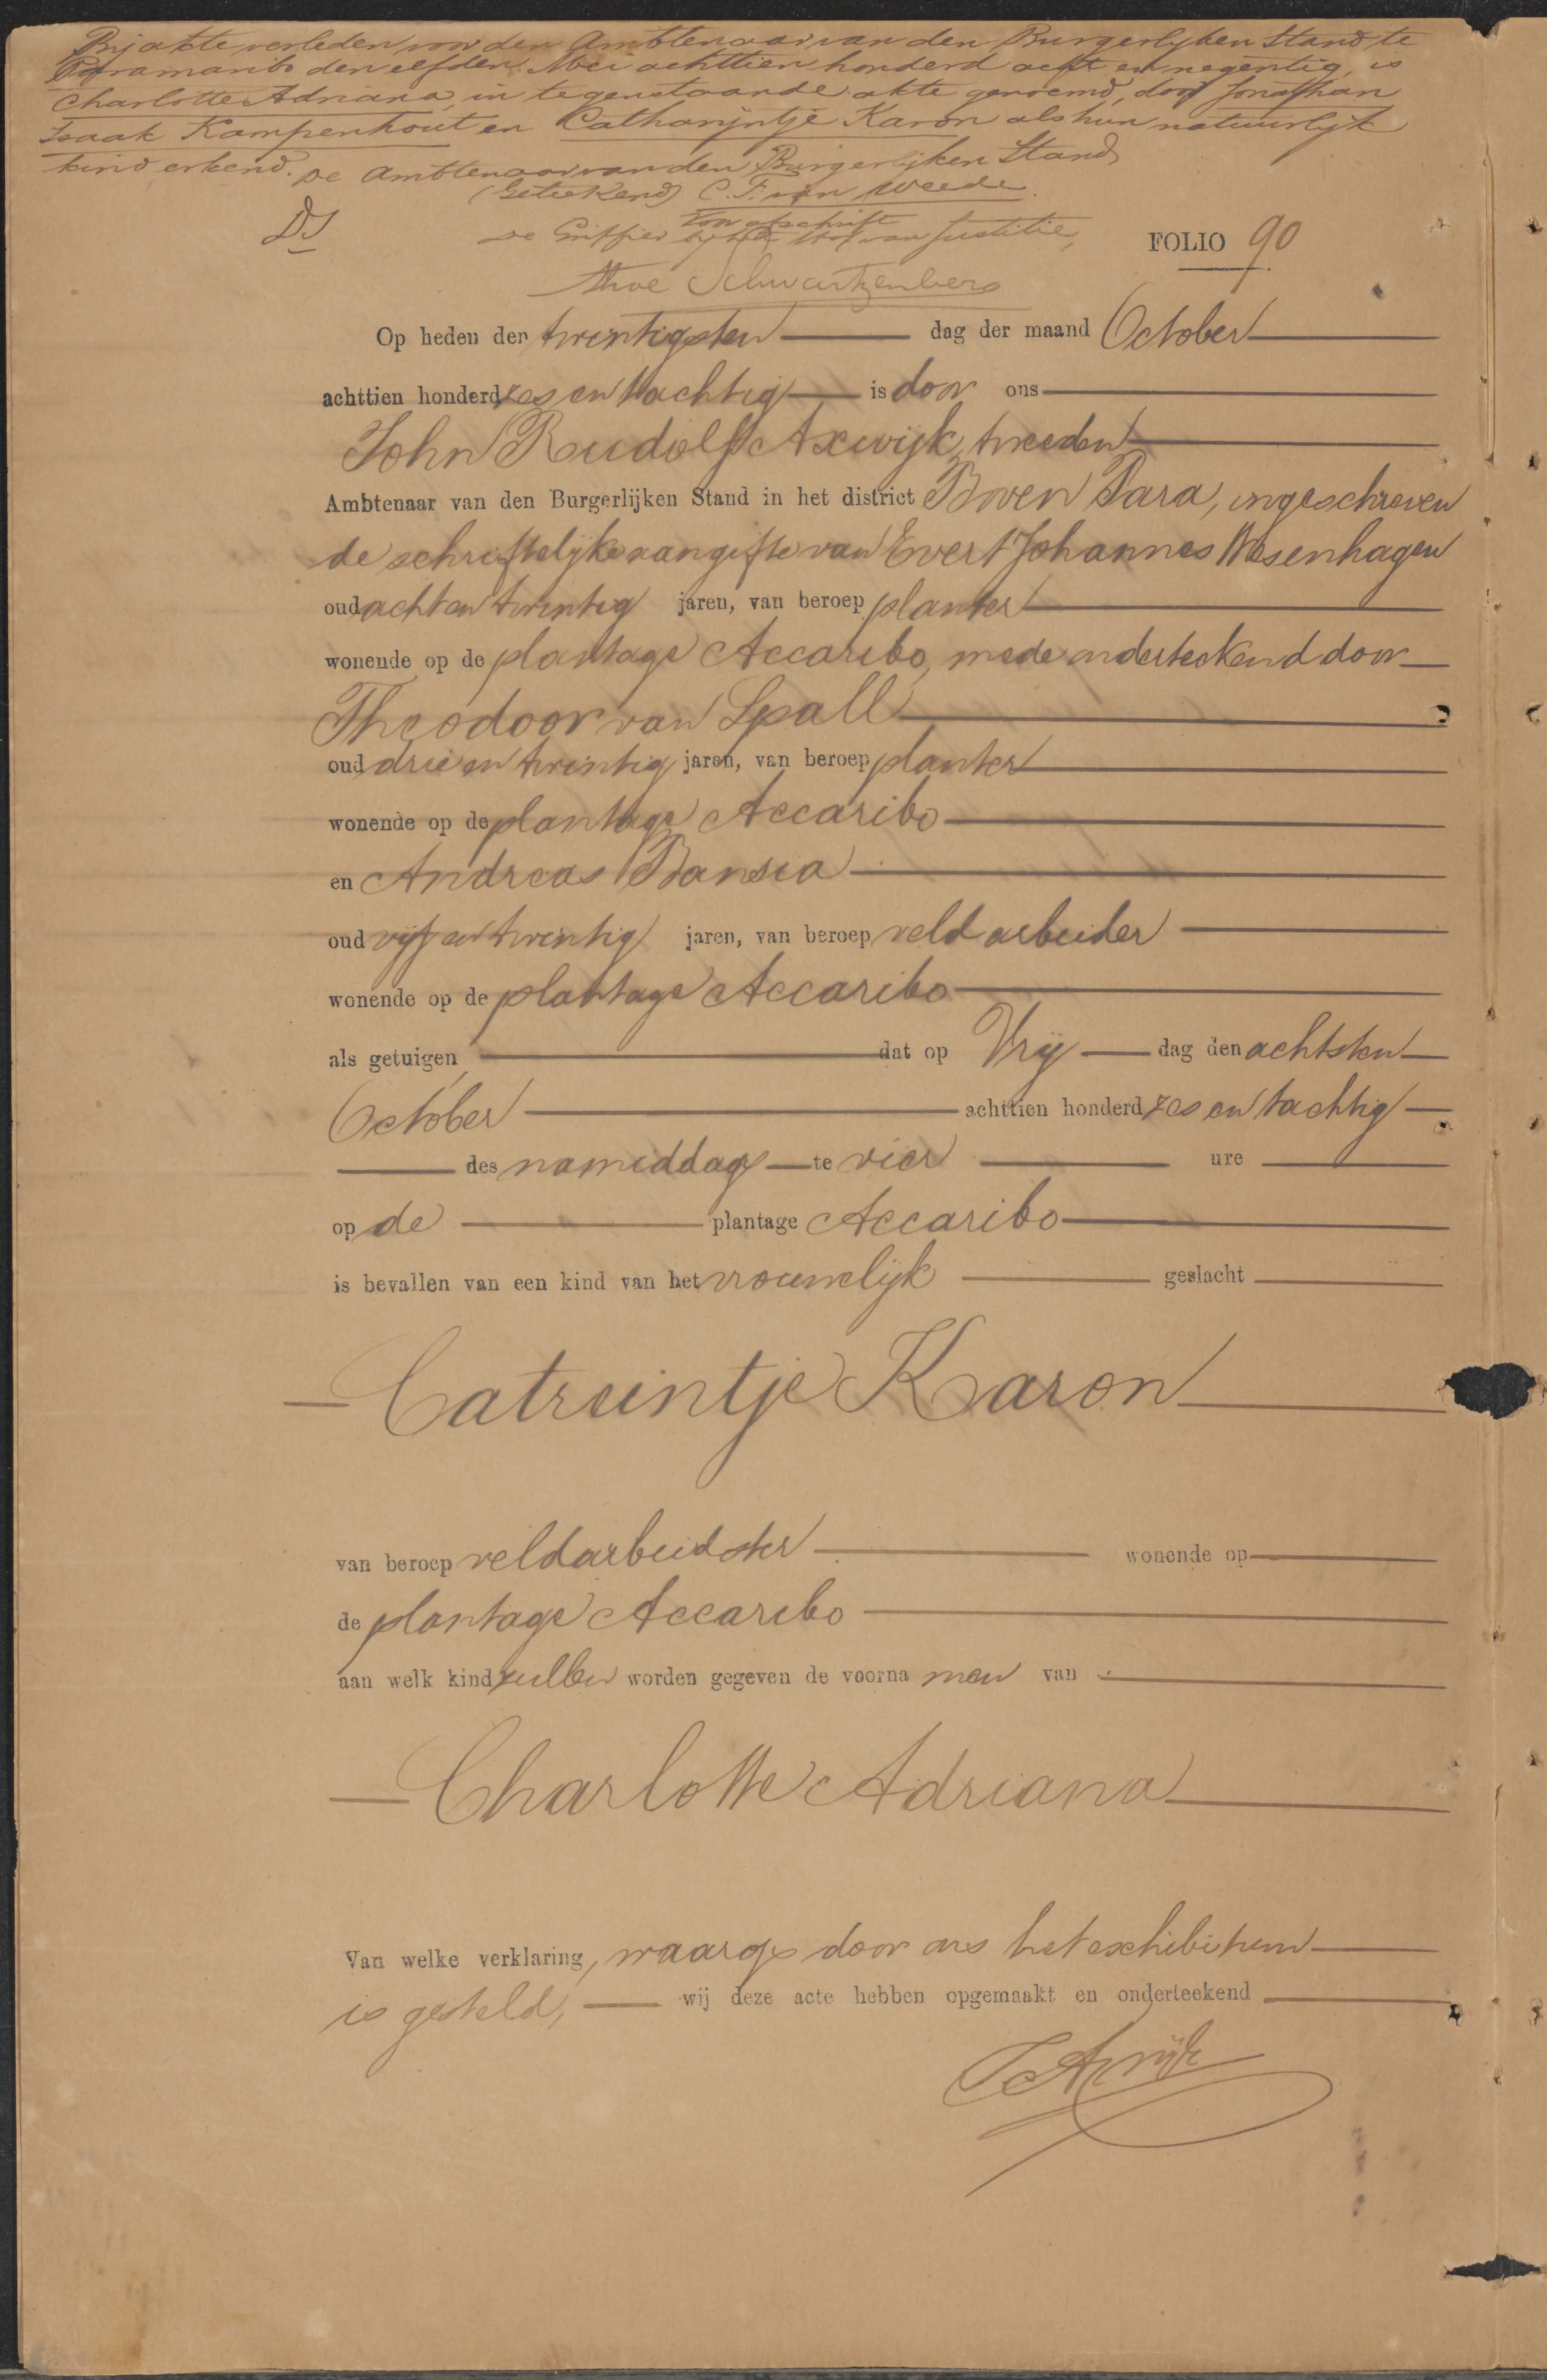 Bij akte verleden voor den Ambtenaar van den Burgerlijken Stand te
Paramaribo den elfden Mei achttien honderd acht en negentig, is
Charlotte Adriana, in tegenstaande akte genoemd, door Jonathan
Isaak Kampenhout en Catharijntje Karon als hun natuurlijk
kind erkend. De Ambtenaar van den Burgerlijken Stand
(Geteekend) C. F. van Weede.
Voor afschrift
De Griffier bij het Hof van Justitie,
Schwartzenberg
FOLIO 90
Op heden den twintigsten dag der maand October
achttien honderd zes en tachtig is door ons
John Rudolf Axwijk, tweeden
Ambtenaar van den Burgerlijken Stand in het district Boven Para, ingeschreven
de schriftelijke aangifte van Evert Johannes Wesenhagen
oud acht en twintig jaren, van beroep planter
wonende op de plantage Accaribo, mede onderteekend door
Theodoor van Spall
oud drie en twintig jaren, van beroep planter
wonende op de plantage Accaribo
en Andreas Bansia
oud vijf en twintig jaren, van beroep veld arbeider
wonende op de plantage Accaribo
als getuigen, dat op Vrij dag den achtsten
October achttien honderd zes en tachtig
des namiddags te vier ure
op de plantage Accaribo
is bevallen van een kind van het vrouwelijk geslacht
Catreintje Karon
van beroep veldarbeidster wonende op
de plantage Accaribo
aan welk kind zullen worden gegeven de voorna men van
Charlotte Adriana
Van welke verklaring, waarop door ons het exhibitum
is gesteld, wij deze acte hebben opgemaakt en onderteekend